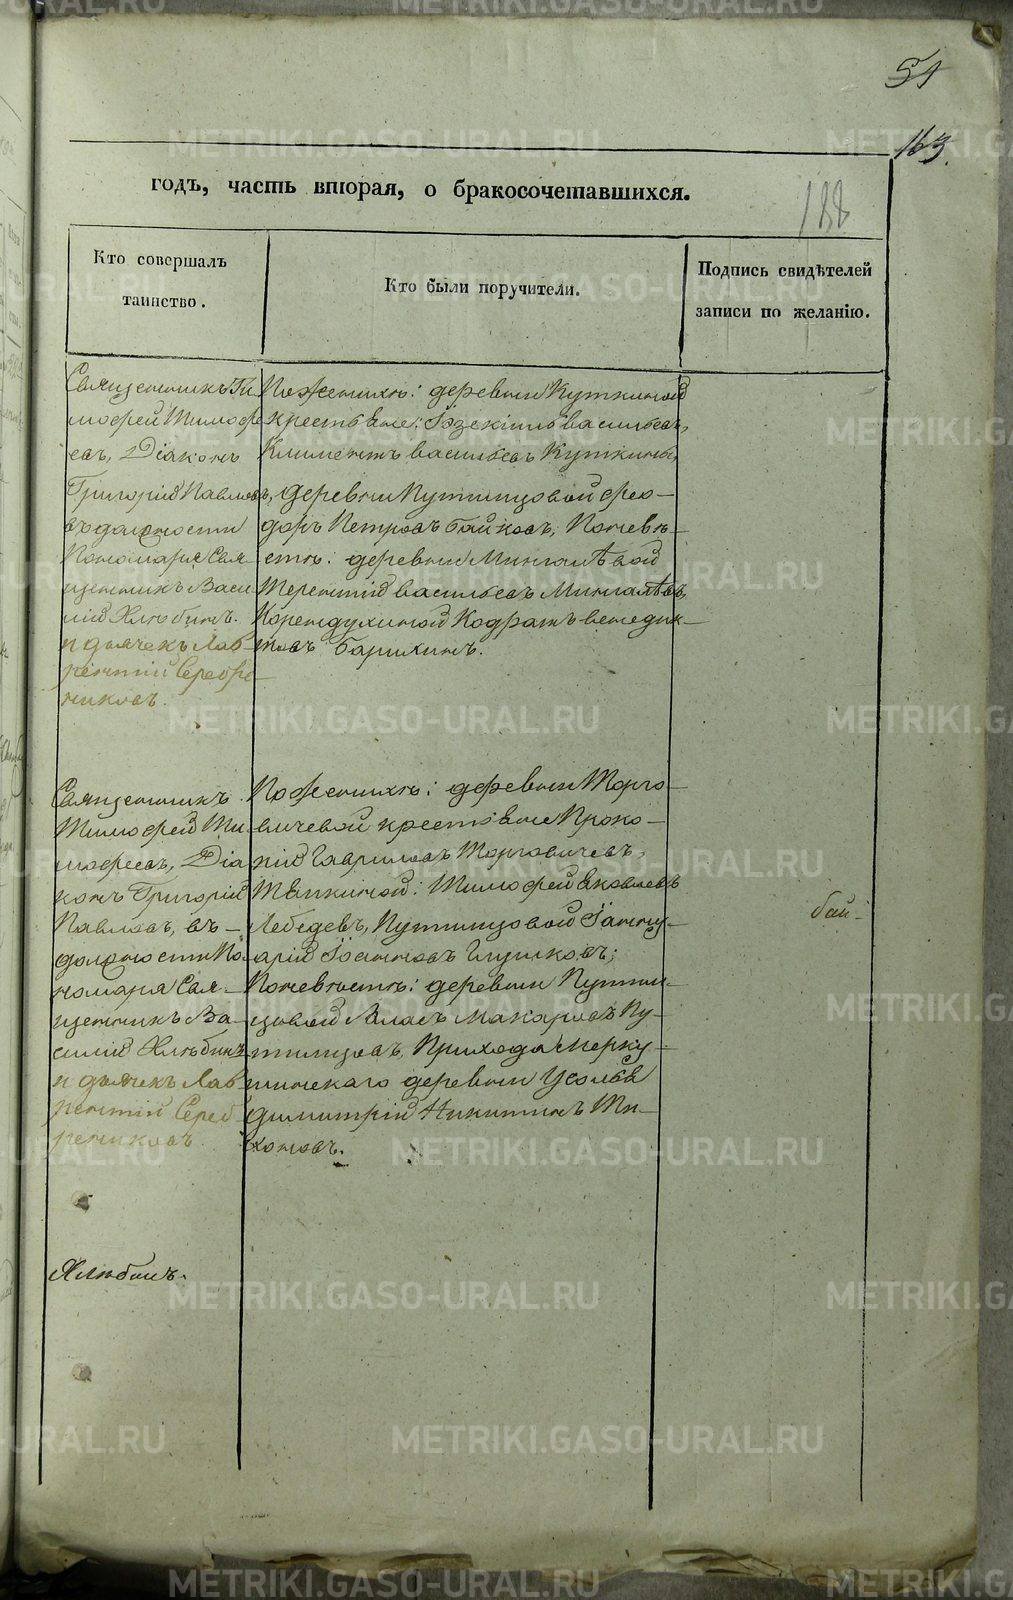 51
163.
188
годъ, часть вторая, о бракосочетавшихся.
Кто совершалъ
таинство.
Кто были поручители.
Подпись свидѣтелей
записи по желанію.
Священникъ Ти
мофей Тимофе
евъ, Діаконъ
Григорій Павловъ,
въ должности
Пономаря Свя
щенникъ Васи
лій Хлѣбинъ.
и дьячекъ Лав
рентій Серебре
никовъ.
По женихѣ: деревни Куткиной
крестьяне: Іэзекіиль васильевъ,
Климентъ васильевъ Куткины,
деревни Путимцовой Фео-
доръ Петровъ Байковъ, По невѣ-
стѣ: деревни Мингалѣвой
Терентій васильевъ Мингалѣвъ,
Корендухиной Кодратъ венедик-
товъ Барихинъ.
Священникъ
Тимофей Ти
мофеевъ, Діа
конъ Григорій
Павловъ, въ-
должности По
номаря Свя-
щенникъ Ва-
силій Хлѣбинъ
и дьячекъ Лав
рентій Среб
рениковъ
По женихѣ: деревни Торго-
вичевой крестьяне Проко-
пій Гавриловъ Торговичевъ,
Тяпкиной: Тимофей яковлевъ
Лебедевъ, Путимцовой Іанну-
арій Іоанновъ Глушковъ;
По невѣстѣ: деревни Путим-
цовой Власъ Макаровъ Пу-
тимцовъ, Прихода Мерку-
шинскаго деревни Усолья
димитрій Никитинъ Ти-
хоновъ.
бай-
Хлѣбинъ.
METRIKI.GASO-URAL.RU